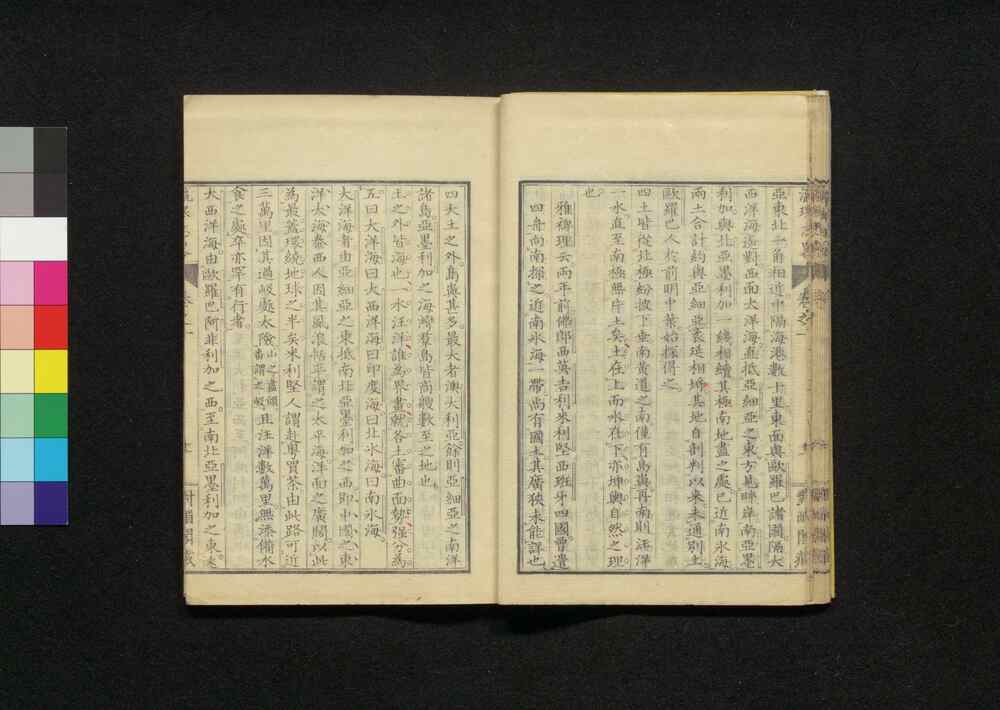 亞東北一角相近中隔海港數十里東面與歐羅巴諸國隔大
西洋海遙對西面大洋海直抵亞細亞之東方見畔岸南亞墨
利加與北亞墨利加一綫相續其極南地盡之處已近南氷海
兩土合計約與亞細亞袤延相埒其地自剖判以來未通別土
歐羅巴人於前明中葉始探得之
四土皆從北極紛披下垂南黃道之南僅有島嶼再南則汪洋
一水直至南極無片土矣土在上而水在下亦坤輿自然之理
也
雅裨理云兩年前佛郎西英吉利米利堅西班牙四國曾遣
四舟向南探之近南氷海一帶尚有國土其廣狹未能詳也
四大土之外島嶼甚多最大者澳大利亞餘則亞細亞之南洋
諸島亞墨利加之海灣羣島皆尚數至之地也
土之外皆海也一水汪洋誰為界畫就各土審曲面勢强分為
五曰大洋海曰大西洋海曰印度海曰北氷海曰南氷海
大洋海者由亞細亞之東抵南北亞墨利加之西即中國之東
洋大海泰西人因其風浪恬平謂之太平海洋面之廣闊以此
為最蓋環繞地球之半矣米利堅人謂赴粵買茶由此路可近
三萬里因其過峽處太險山之盡頭番謂之峽且汪洋數萬里無添備水
食之處卒亦罕有行者
大西洋海由歐羅巴阿非利加之西至南北亞墨利加之東